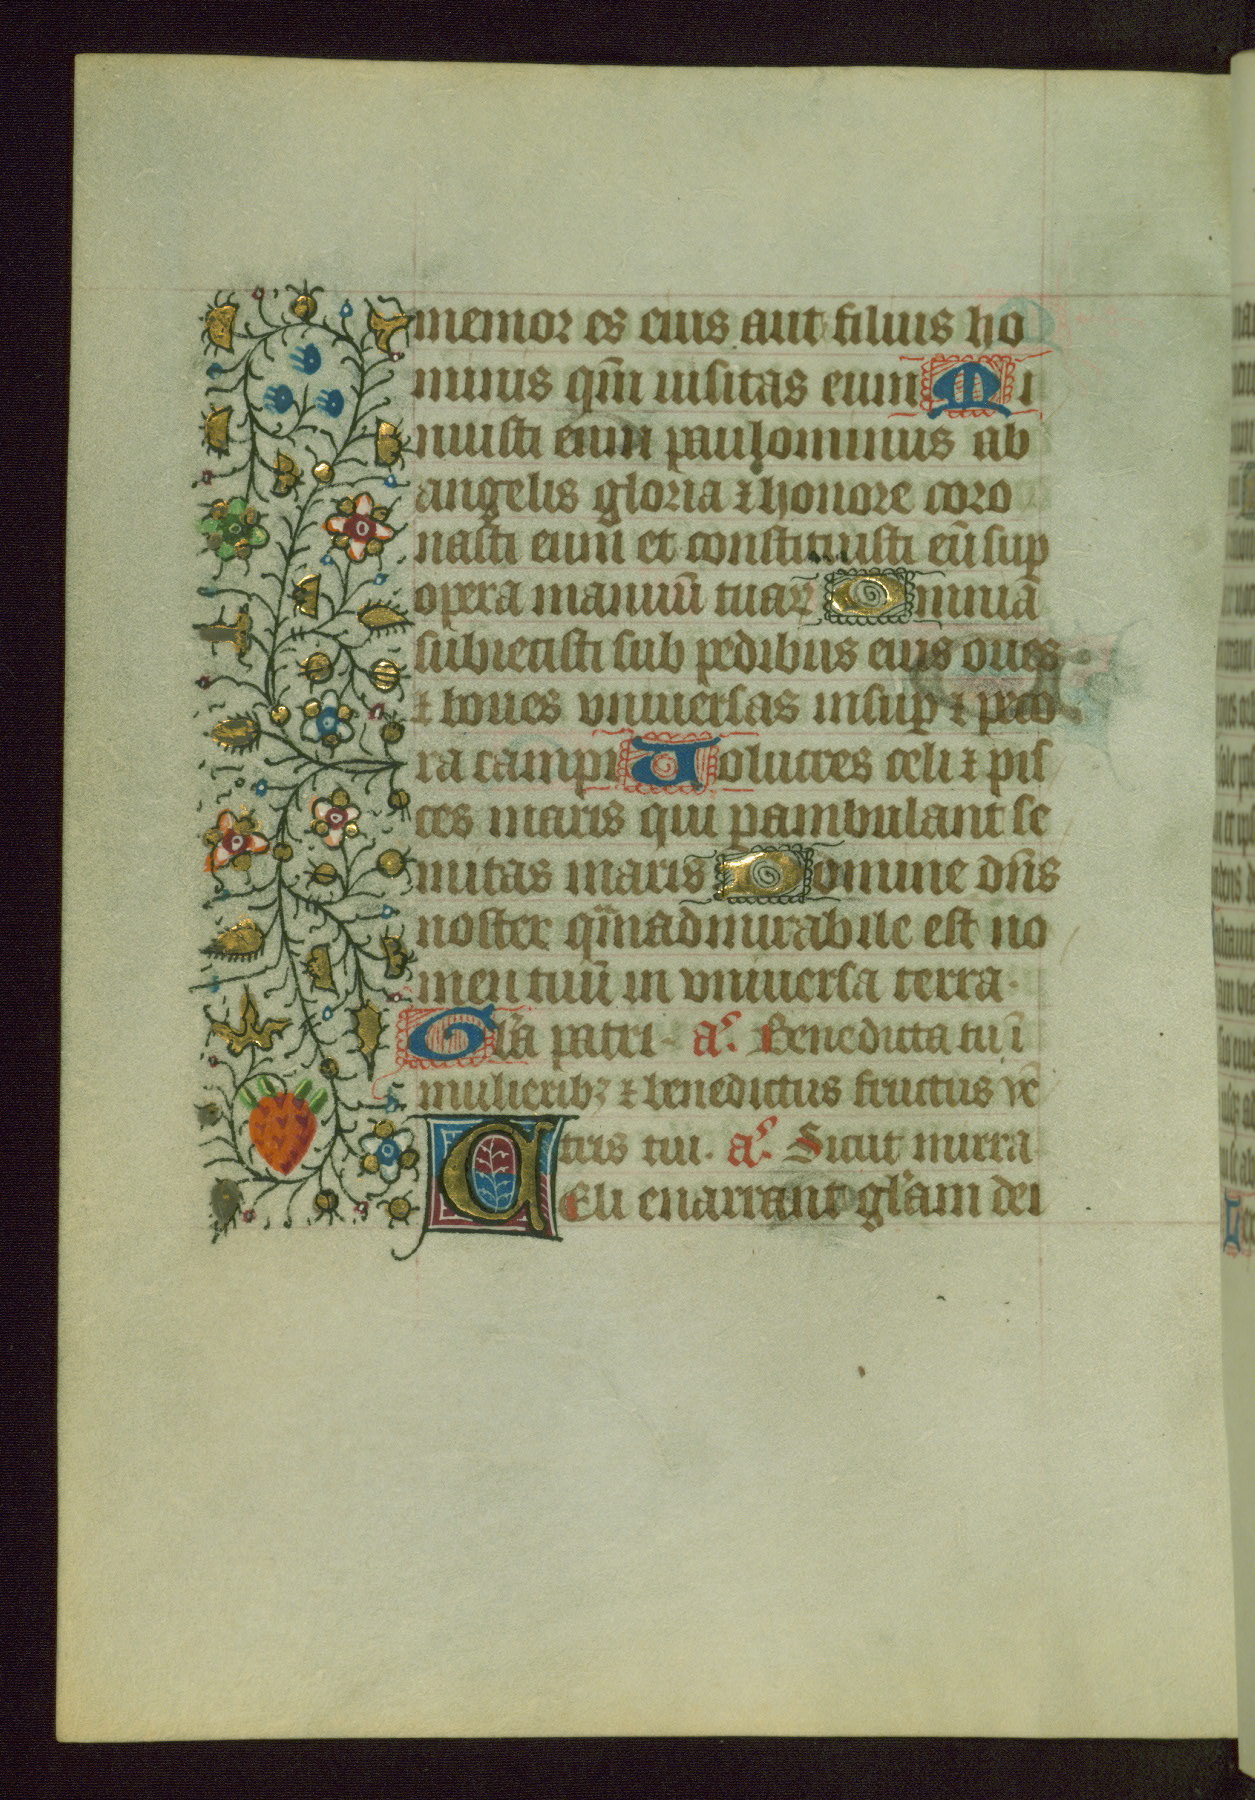 memor es eius aut filius ho
minis qm̄ uisitas eum Mi
nuisti eum paulominus ab
angelis gloria ⁊ honore coro
nasti eum et constituisti eū sup
opera manuū tuaꝝ Omnia
subiecisti sub pedibus eius oues
⁊ boues vniuersas insup ⁊ peco
ra campi Uolucres celi ⁊ pis
ces maris qui pambulant se
mitas maris Domine dn̄s
noster qm̄ admirabile est no
men tuū in vniuersa terra.
Gl'a patri. a͛. Benedicta tu ī
mulieribꝫ ⁊ benedictus fructus vē
tris tui. a͛. Sicut mirra
CEli enarrant gl'am dei